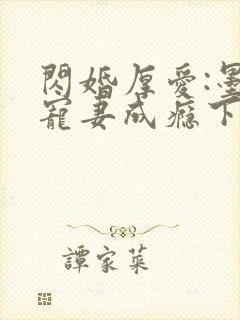 閃婚厚愛:墨
寵妻成癮下
譚家菜